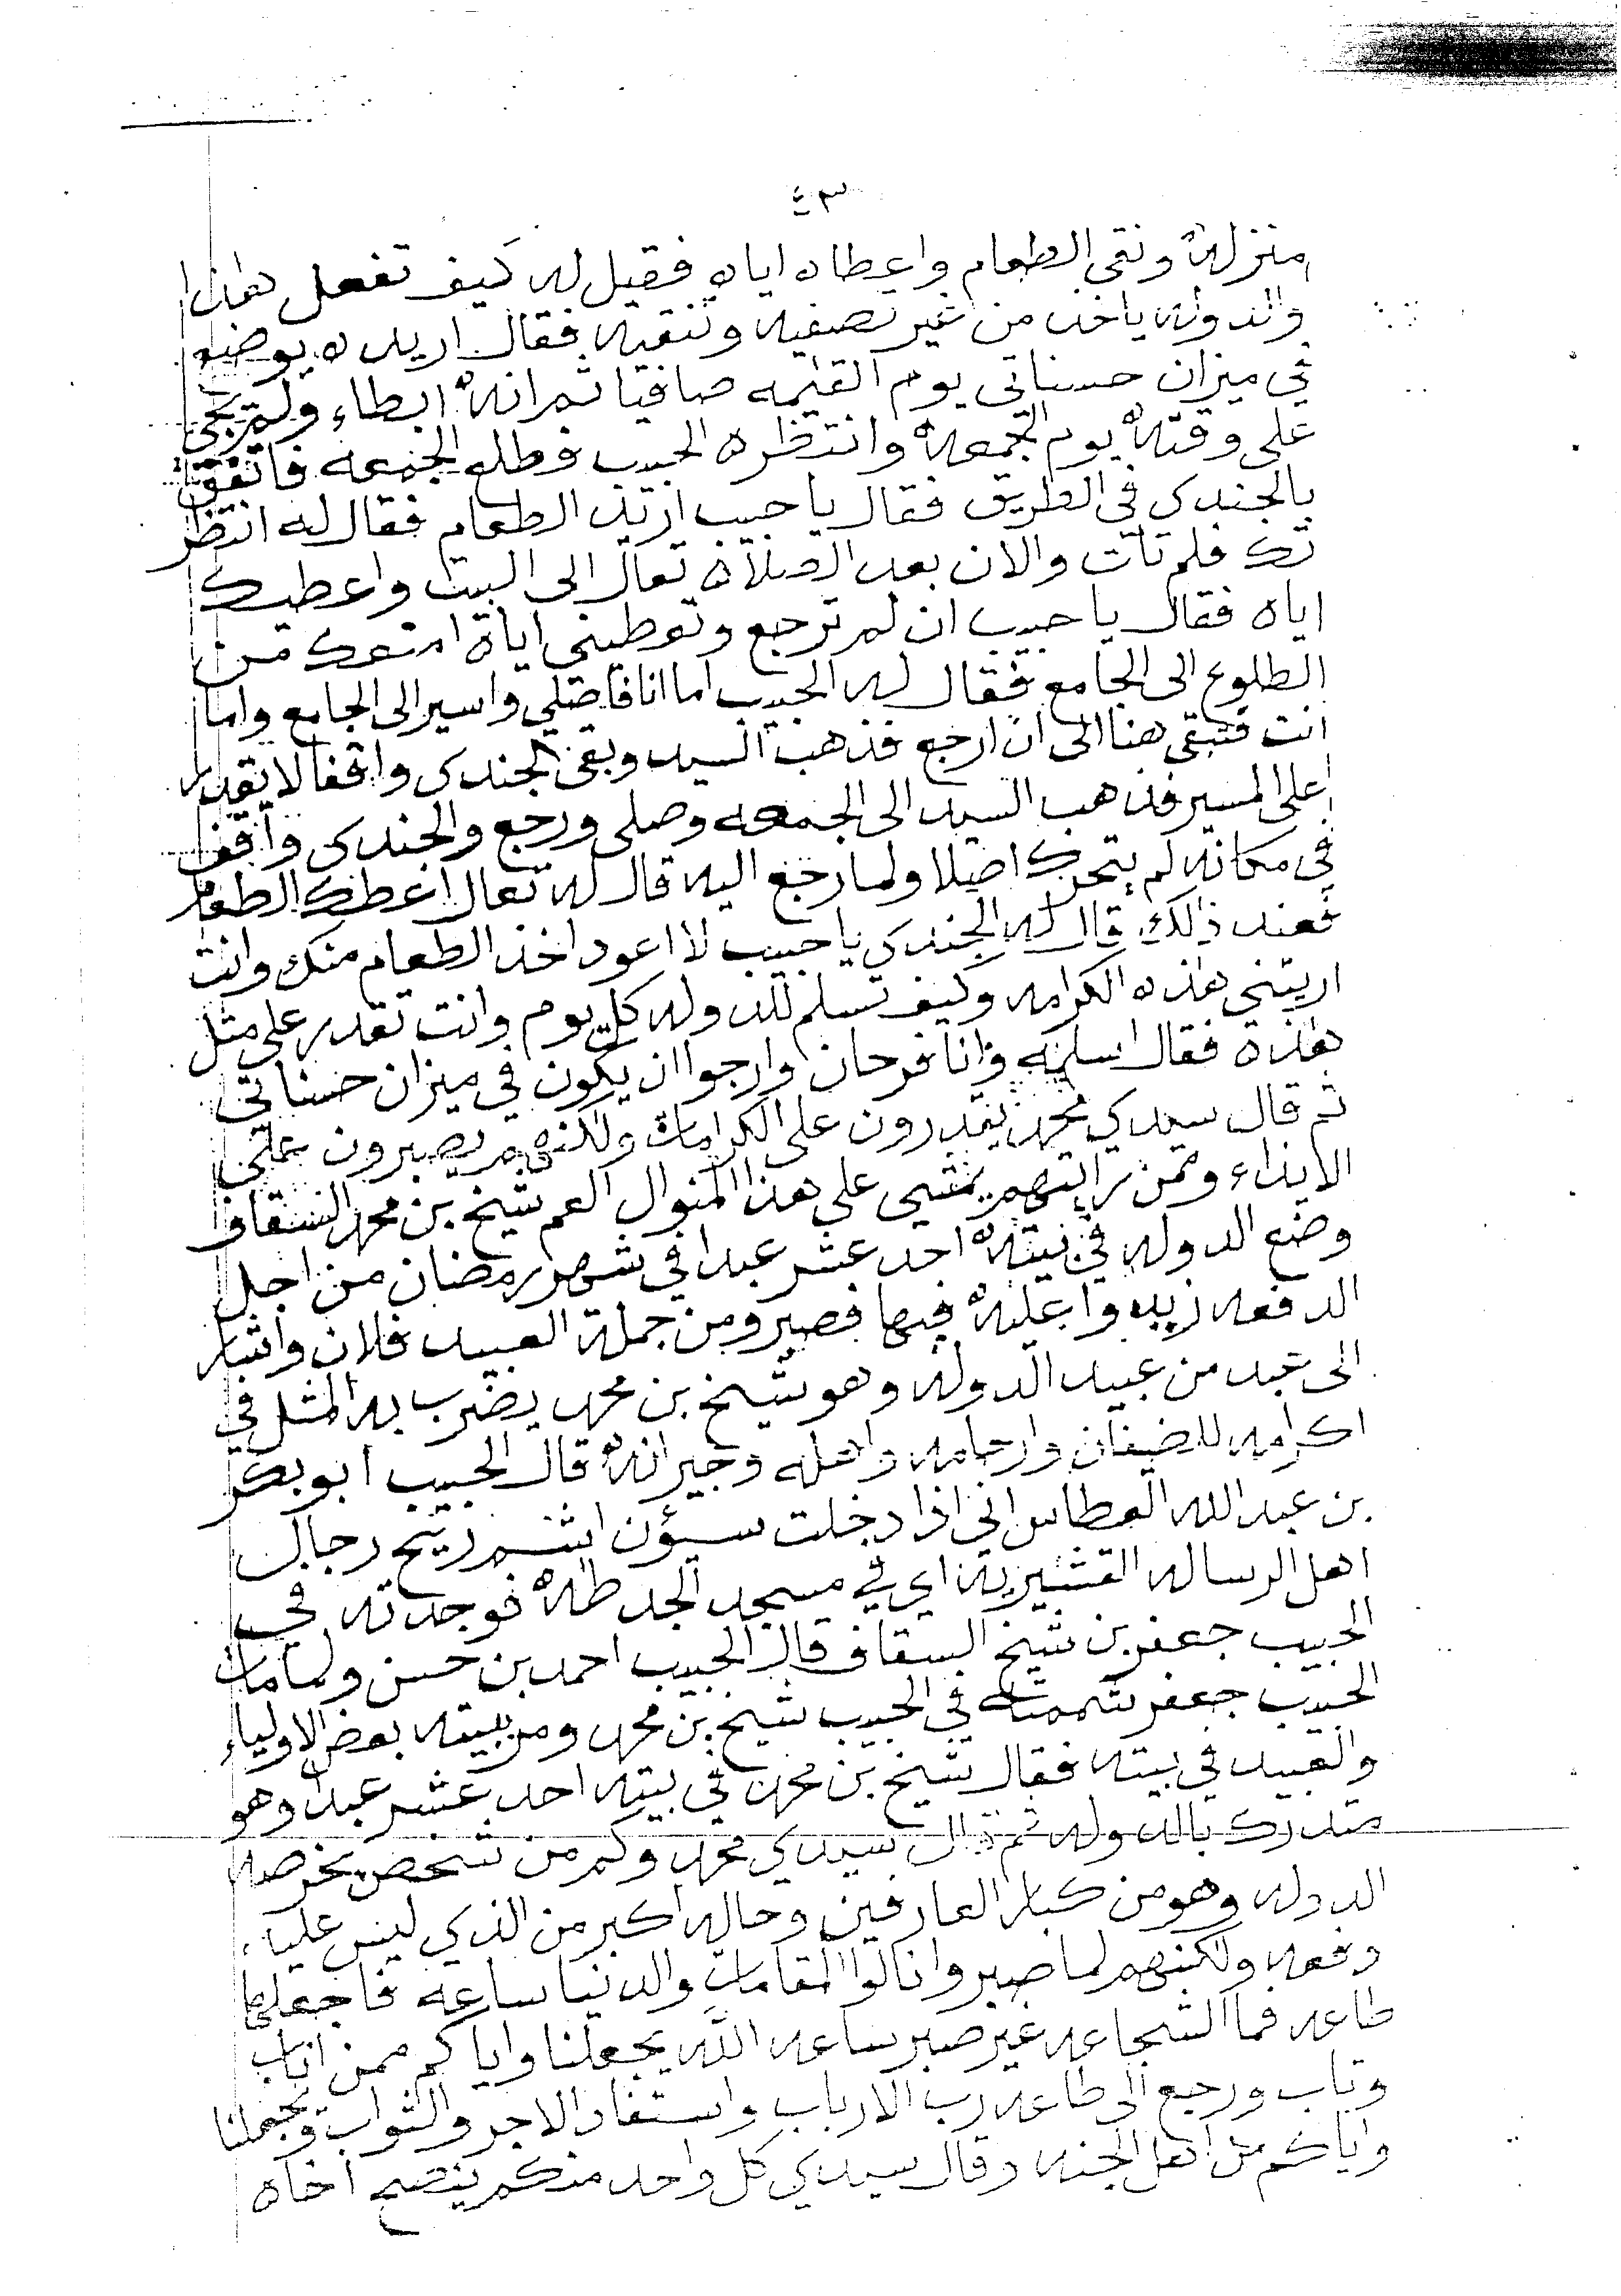 ٤٣
منزله ونقى الطعام واعطاه اياه فقيل له كيف تفعل هذا
والدوله ياخذ من غير تصفيه وتنقيه فقال اريده يوضع
في ميزان حسناتي يوم القيمه صافيا ثم انه ابطاء ولم يجي
على وقته يوم الجمعه وانتظره الحبيب وطلع الجمعه فاتفق
بالجندي في الطريق فقال يا حبيب اريد الطعام فقال له انتظر
تك فلم تات والان بعد الصلاة تعال الى البيت واعطيك
اياه فقال يا حبيب ان لم ترجع وتعطيني اياه امنعك من
الطلوع الى الجامع فقال له الحبيب اما انا فاصلي واسير الى الجامع واما
انت فتبقى هنا الى ان ارجع فذهب السيد وبقى الجندي واقفا لا يقدر
على المسير فذهب السيد الى الجمعه وصلى ورجع والجندي واقف
في مكانه لم يتحرك اصلا ولما رجع اليه قال له تعال اعطك الطعام
فعند ذالك قال له الجندي يا حبيب لا اعود اخذ الطعام منك وانت
اريتني هذه الكرامه وكيف تسلم للدوله كل يوم وانت تقدر على مثل
هذه فقال اسلمه وانا فرحان وارجوا ان يكون في ميزان حسناتي
ثم قال سيدي محمد يقدرون على الكرامات ولكنهم يصبرون على
الايذاء وممن رايتهم يمشي على هذا المنوال العم شيخ بن محمد السقاف
وضع الدوله في بيته احد عشر عبدا في شهر رمضان من اجل
الدفعه زيدوا عليه فيها فصبر ومن جملة العبيد فلان واشار
الى عبد من عبيد الدوله وهو شيخ بن محمد يضرب به المثل في
اكرامه للضيفان وارحامه واهله وجيرانه قال الحبيب ابو بكر
بن عبد الله العطاس اني اذا دخلت سيؤن اشم ريح رجال
اهل الرساله القشيرية اي في مسجد الجد طه فوجدته في
الحبيب جعفر بن شيخ السقاف قال الحبيب احمد بن حسن ولما مات
الحبيب جعفر شممته في الحبيب شيخ بن محمد ومر ببيته بعض الاولياء
والعبيد في بيته فقال شيخ بن محمد في بيته احد عشر عبدا وهو
متدرك بالدوله ثم قال سيدي محمد وكم من شخص يخرصه
الدوله وهو من كبار العارفين وحاله اكبر من الذي ليس عليه
دفعه ولكنهم لما صبروا نالوا المقامات والدنيا ساعه فاجعلها
طاعه فما الشجاعه غير صبر ساعه الله يجعلنا واياكم ممن اناب
وتاب ورجع الى طاعه رب الارباب واستفاد الاجر والثواب ويجعلنا
واياكم من اهل الجنه وقال سيدي كل واحد منكم ينصح اخاه